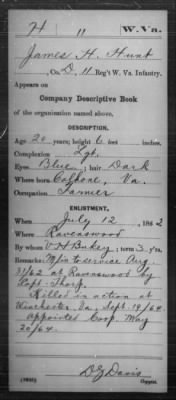 H 11 W.Va.
James H. Hunt
, Co. D, 11 Reg't W. Va. Infantry.
Appears on
Company Descriptive Book
of the organization named above.
DESCRIPTION.
Age 20 years; height 6 feet inches.
Complexion Lgt.
Eyes Blue; hair Dark
Where born Calhone, Va.
Occupation Farmer
ENLISTMENT.
When July 12, 1862
Where Ravenswood
By whom V H Bukey; term 3 y'rs.
Remarks: M/in to service Aug.
31/62 at Ravenswood by
Capt. Thorp.
Killed in action at
Winchester, Va., Sept. 19/64
appointed Corp. May
20/64.
D G Davis
Copyist.